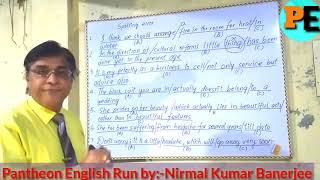 Spelling error
PE
1. I think we should arrange / a fire in the room for heat/in
winter
2. In the direction of cultural reforms little being has been
done yet in the present age
3. It is my priority in a business to sell/not only service but
advice also
4. The black suit you are in/actually doesn't belong/to a
wedding
5. She prides on her beauty / which actually lies in beautiful acts
rather than in beautiful features
6. She has been suffering from headache for several years/till date
7. Don't worry, it is a little headache, which will go away very soon
Pantheon English Run by:-Nirmal Kumar Banerjee